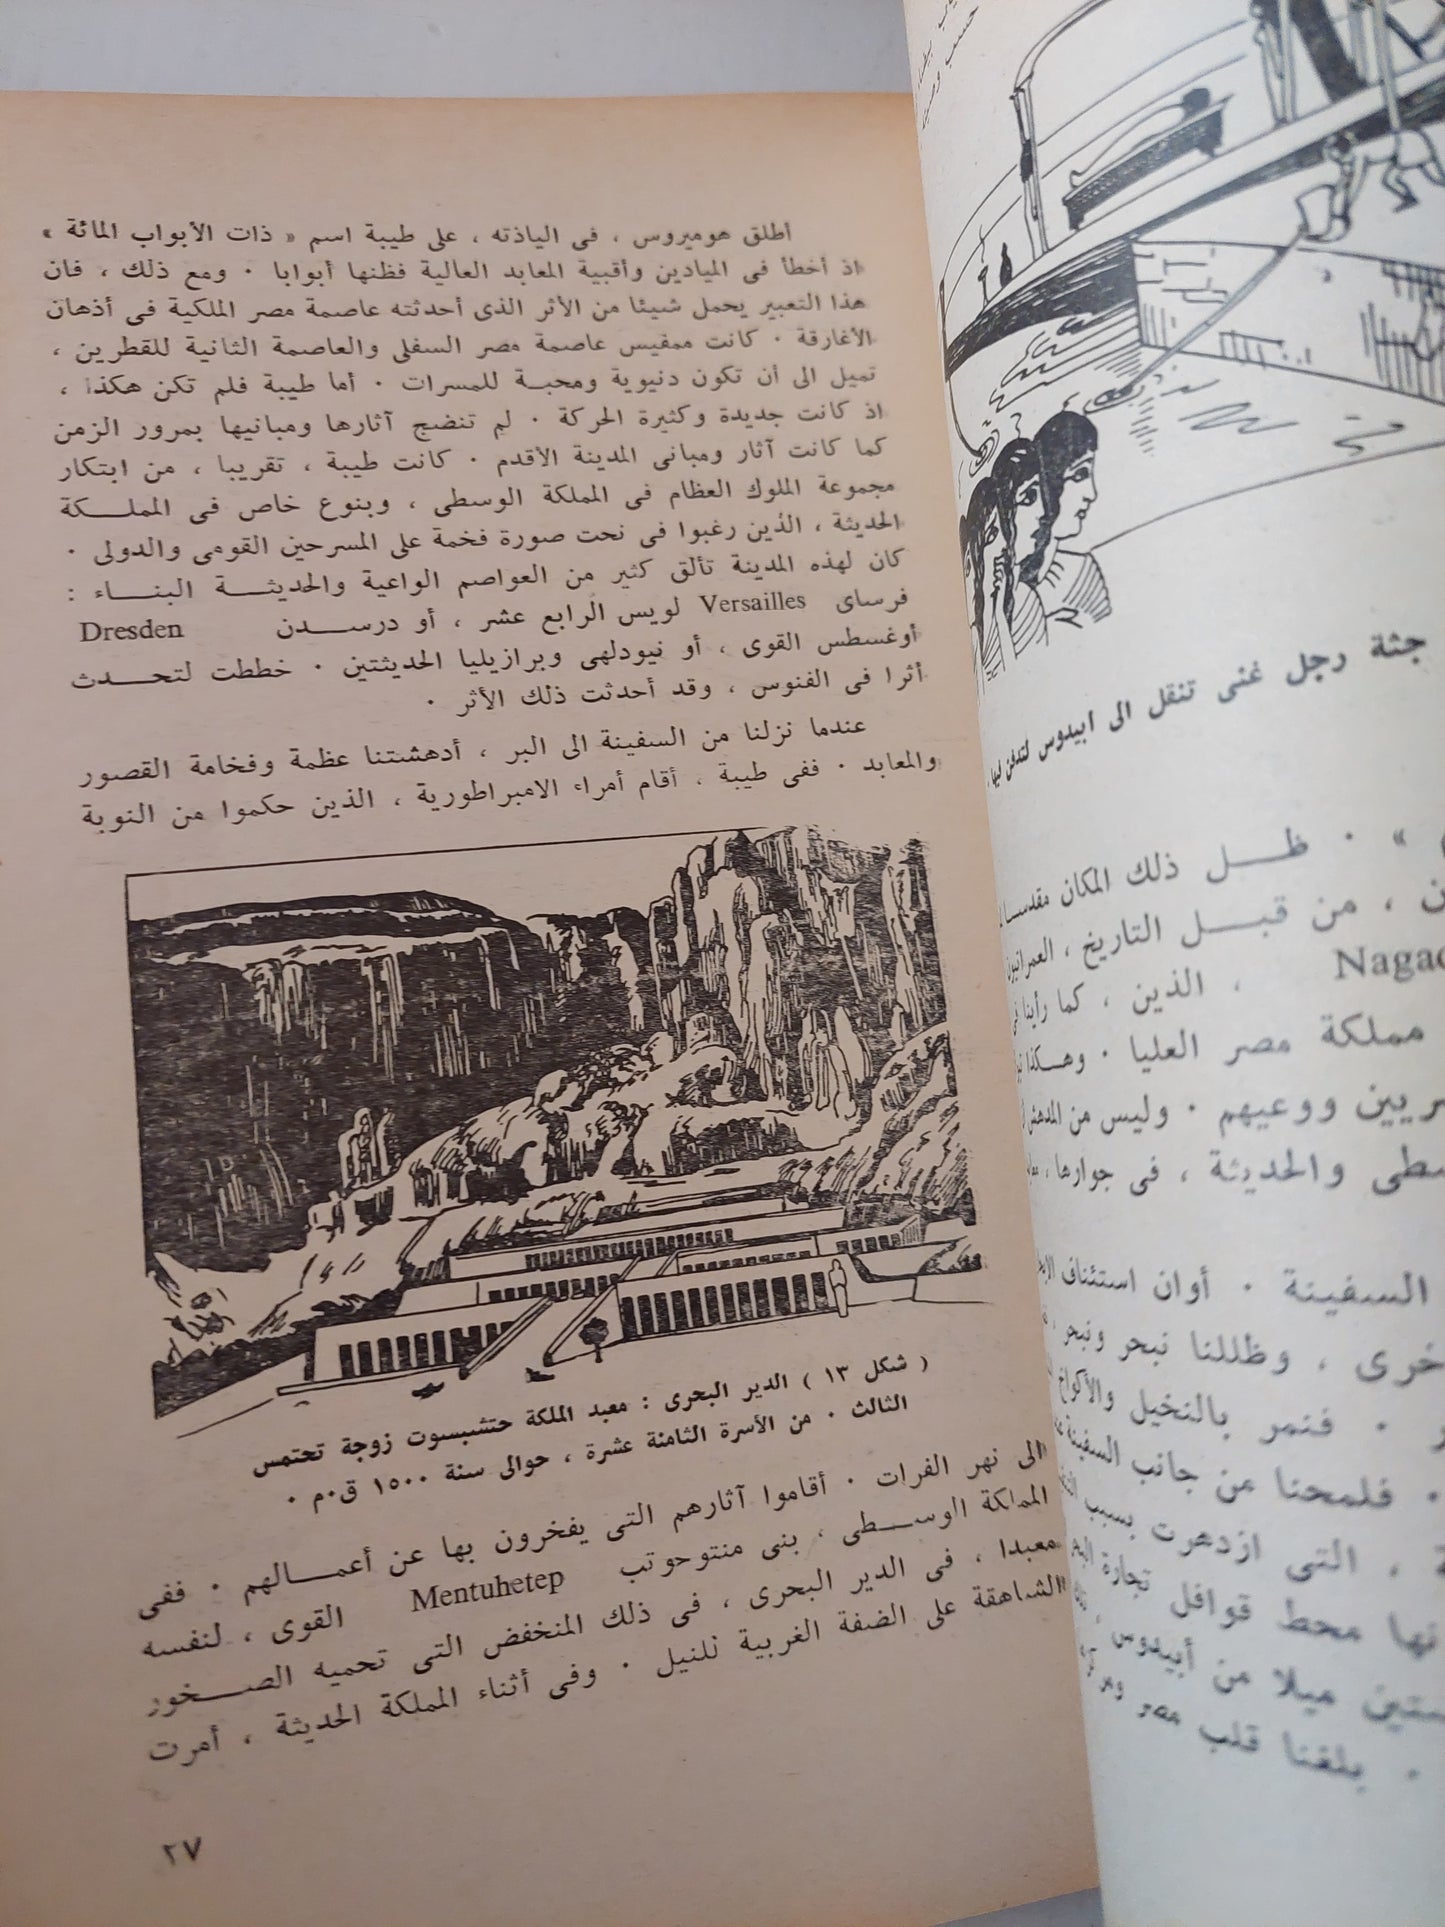 أطلق هوميروس ، فى الياذته ، على طيبة اسم « ذات الأبواب المائة »
اذ أخطأ فى الميادين وأقبية المعابد العالية فظنها أبوابا ٠ ومع ذلك ، فان
هذا التعبير يحمل شيئا من الأثر الذى أحدثته عاصمة مصر الملكية فى أذهان
الأغارقة ٠ كانت ممفيس عاصمة مصر السفلى والعاصمة الثانية للقطرين ،
تميل الى أن تكون دنيوية ومحبة للمسرات ٠ أما طيبة فلم تكن هكذا ،
اذ كانت جديدة وكثيرة الحركة ٠ لم تنضج آثارها ومبانيها بمرور الزمن
كما كانت آثار ومبانى المدينة الأقدم ٠ كانت طيبة ، تقريبا ، من ابتكار
مجموعة الملوك العظام فى المملكة الوسطى ، وبنوع خاص فى المملكة
الحديثة ، الذين رغبوا فى نحت صورة فخمة على المسرحين القومى والدولى ٠
كان لهذه المدينة تألق كثير من العواصم الواعية والحديثة البناء :
فرساى Versailles لويس الرابع عشر ، أو درسدن Dresden
أوغسطس القوى ، أو نيودلهى وبرازيليا الحديثتين ٠ خططت لتحدث
أثرا فى الفنوس ، وقد أحدثت ذلك الأثر ٠
عندما نزلنا من السفينة الى البر ، أدهشتنا عظمة وفخامة القصور
والمعابد ٠ ففى طيبة ، أقام أمراء الامبراطورية ، الذين حكموا من النوبة
( شكل ١٣ ) الدير البحرى : معبد الملكة حتشبسوت زوجة تحتمس
الثالث ٠ من الأسرة الثامنة عشرة ، حوالى سنة ١٥٠٠ ق٠م ٠
الى نهر الفرات ٠ أقاموا آثارهم التى يفخرون بها عن أعمالهم ٠ ففى
المملكة الوسطى ، بنى منتوحوتب Mentuhetep القوى ، لنفسه
معبدا ، فى الدير البحرى ، فى ذلك المنخفض التى تحميه الصخور
الشاهقة على الضفة الغربية للنيل ٠ وفى أثناء المملكة الحديثة ، أمرت
٢٧
جثة رجل غنى تنقل الى ابيدوس لتدفن فيها ٠
» ٠ ظل ذلك المكان مقدسا
، من قبل التاريخ ، العمرانيون
، الذين ، كما رأينا فى
مملكة مصر العليا ٠ وهكذا
ووعيهم ٠ وليس من المدهش
والحديثة ، فى جوارها ،
السفينة ٠ أوان استئناف
، وظللنا نبحر ونبحر ،
٠ فنمر بالنخيل والأكواخ
٠ فلمحنا من جانب السفينة
، التى ازدهرت بسبب
محط قوافل تجارة
ميلا من أبيدوس ،
٠ بلغنا قلب مصر